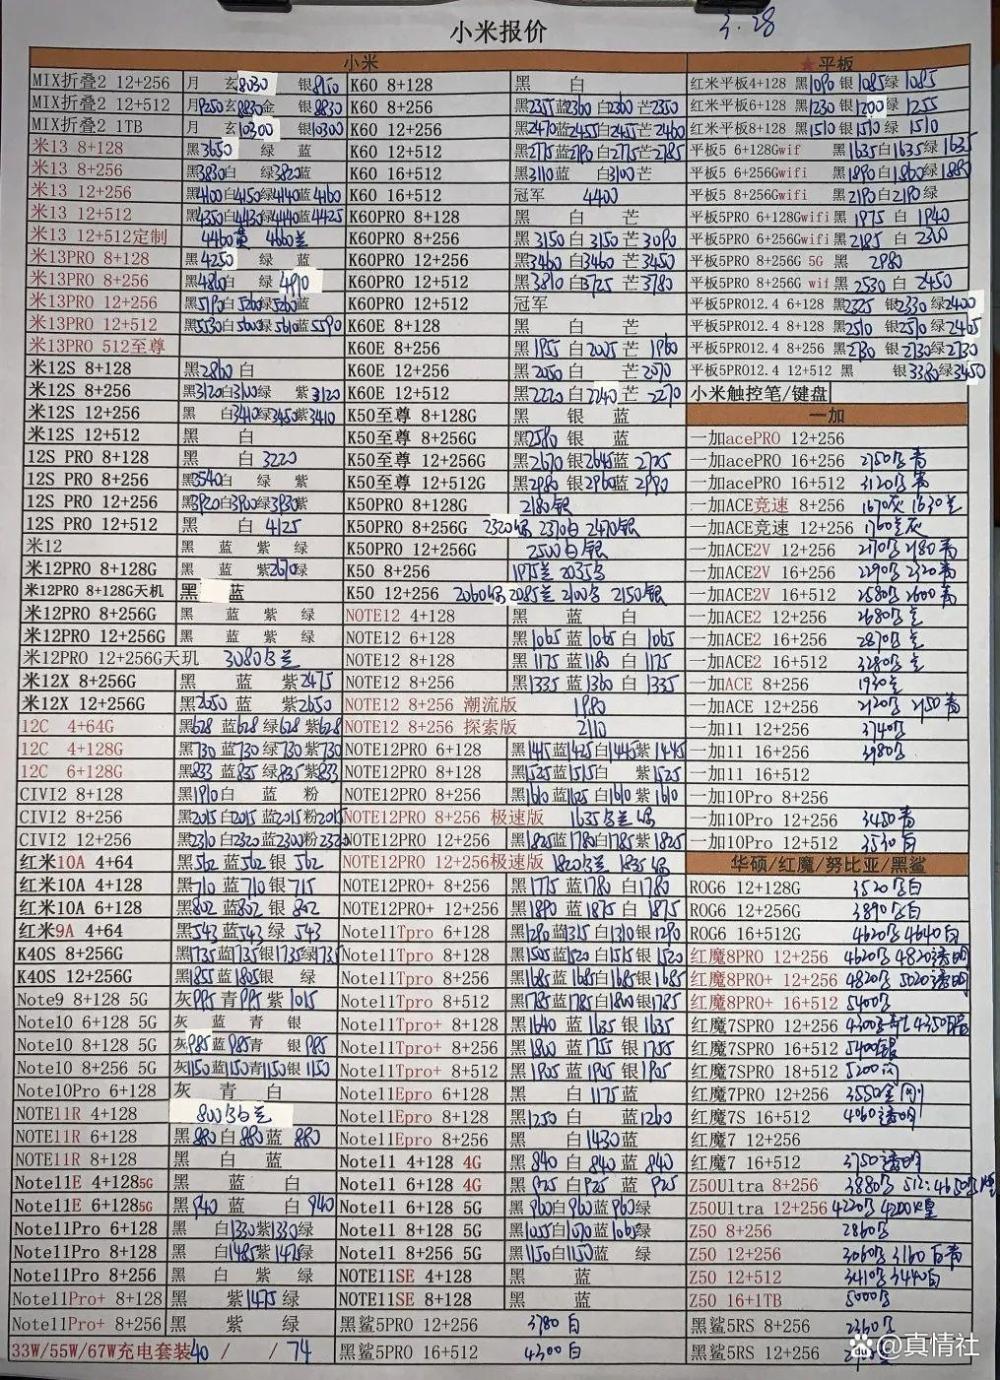 小米报价
3.28
小米
MIX折叠2 12+256 月 玄8030 银8150
MIX折叠2 12+512 月9250玄8830金 银8830
MIX折叠2 1TB 月 玄10300 银10300
米13 8+128 黑3650 绿 蓝
米13 8+256 黑3830白 绿3820蓝
米13 12+256 黑4100白4150绿4140蓝4160
米13 12+512 黑4350白4413绿4440蓝4425
米13 12+512定制 4460黄 4660兰
米13PRO 8+128 黑4250 绿 蓝
米13PRO 8+256 黑4860白 绿 4910
米13PRO 12+256 黑5190白5200绿5200蓝
米13PRO 12+512 黑5530白5600绿5610蓝5590
米13PRO 512至尊
米12S 8+128 黑2860白
米12S 8+256 黑3120白3100绿 紫3120
米12S 12+256 黑 白3410绿3450紫3410
米12S 12+512 黑 白
12S PRO 8+128 黑 白 3220
12S PRO 8+256 黑3540白 绿 紫
12S PRO 12+256 黑3920白3900绿3930紫
12S PRO 12+512 黑 白 4125
米12 黑 蓝 紫 绿
米12PRO 8+128G 黑 蓝 紫2670绿
米12PRO 8+128G天机 黑 蓝
米12PRO 8+256G 黑 蓝 紫 绿
米12PRO 12+256G 黑 蓝 紫 绿
米12PRO 12+256G天玑 3080白兰
米12X 8+256G 黑 蓝 紫2475
米12X 12+256G 黑2650 蓝 紫2650
12C 4+64G 黑628 蓝628 绿628 紫628
12C 4+128G 黑730 蓝730 绿730 紫730
12C 6+128G 黑833 蓝835 绿835 紫833
CIVI2 8+128 黑1910白 蓝 粉
CIVI2 8+256 黑2015白2015蓝2015粉2015
CIVI2 12+256 黑2310白2320蓝2300粉2320
红米10A 4+64 黑562 蓝562 银 562
红米10A 4+128 黑710 蓝710 银715
红米10A 6+128 黑802 蓝802 银 802
红米9A 4+64 黑543 蓝543 绿 543
K40S 8+256G 黑1735蓝1735银1735绿1735
K40S 12+256G 黑1855蓝1805银 绿
Note9 8+128 5G 灰995 青995 紫1015
Note10 6+128 5G 灰 蓝 青 银
Note10 8+128 5G 灰985蓝985青 银985
Note10 8+256 5G 灰1150蓝1150青1150银1150
Note10Pro 6+128 灰 青 白
NOTE11R 4+128 800白兰
NOTE11R 6+128 黑880白880蓝 880
NOTE11R 8+128 黑 白 蓝
Note11E 4+1285G 黑 蓝 白
Note11E 6+1285G 黑940 蓝 白 940
Note11Pro 6+128 黑 白1330紫1330绿
Note11Pro 8+128 黑 白1485紫1475绿
Note11Pro 8+256 黑 白 紫 绿
Note11Pro+ 8+128 黑 紫1475绿
Note11Pro+ 8+256 黑 紫 绿
33W/55W/67W充电套装40 / / 74
K60 8+128 黑 白
K60 8+256 黑2355蓝2360白2360芒2350
K60 12+256 黑2470蓝2455白2455芒2460
K60 12+512 黑2775蓝2790白2775芒2785
K60 16+512 黑3110蓝 白3100芒
K60 16+512 冠军 4400
K60PRO 8+128 黑 白 芒
K60PRO 8+256 黑3150白3150芒3090
K60PRO 12+256 黑3460白3460芒3450
K60PRO 12+512 黑3810白3725芒3780
K60PRO 12+512 冠军
K60E 8+128 黑 白 芒
K60E 8+256 黑1955 白2005芒1960
K60E 12+256 黑2050 白 芒2070
K60E 12+512 黑2220 白2240 芒2270
K50至尊 8+128G 黑 银 蓝
K50至尊 8+256G 黑2580 银 蓝
K50至尊 12+256G 黑2670银2645蓝2725
K50至尊 12+512G 黑2980 银2960蓝2990
K50PRO 8+128G 2180银
K50PRO 8+256G 2370白 2470银
K50PRO 12+256G 2500白银
K50 8+256 1975兰
K50 12+256 2085兰 2150银
NOTE12 4+128 黑 蓝 白
NOTE12 6+128 黑1065 蓝1065白 1065
NOTE12 8+128 黑1175 蓝1180 白 1175
NOTE12 8+256 黑1335 蓝1360 白 1335
NOTE12 8+256 潮流版 1980
NOTE12 8+256 探索版 2110
NOTE12PRO 6+128 黑1415蓝1425白1445紫1445
NOTE12PRO 8+128 黑1525蓝1515白 紫1525
NOTE12PRO 8+256 黑1610蓝1625白1610紫1610
NOTE12PRO 8+256 极速版
NOTE12PRO 12+256 黑1825蓝1780白1785紫1825
NOTE12PRO 12+256极速版
NOTE12PRO+ 8+256 黑1775 蓝1780 白1780
NOTE12PRO+ 12+256 黑1890 蓝1875 白 1875
Note11Tpro 6+128 黑1290蓝1315白1310银1290
Note11Tpro 8+128 黑1505蓝1520白1515银1520
Note11Tpro 8+256 黑1685蓝1685白1685银1685
Note11Tpro 8+512 黑1785蓝1785白1800银1785
Note11Tpro+ 8+128 黑1640 蓝1635 银1635
Note11Tpro+ 8+256 黑1800 蓝1755 银1755
Note11Tpro+ 8+512 黑1905 蓝1905 银1905
Note11Epro 6+128 黑 白1175蓝
Note11Epro 8+128 黑1250 白 蓝1260
Note11Epro 8+256 黑 白1430蓝
Note11 4+128 4G 黑840 白 840 蓝 840
Note11 6+128 4G 黑925 白925 蓝 925
Note11 6+128 5G 黑960白960蓝960绿
Note11 8+128 5G 黑1055白1070蓝1065绿
Note11 8+256 5G 黑1150白1150蓝 绿
NOTE11SE 4+128 黑 蓝
NOTE11SE 8+128 黑 蓝
黑鲨5PRO 12+256 3780白
黑鲨5PRO 16+512 4300白
★平板
红米平板4+128 黑1090 银1085绿1085
红米平板 6+128 黑1230 银1200绿1255
红米平板8+128 黑1510 银1510 绿1510
平板5 6+128Gwif 黑1635白1635绿1635
平板5 6+256Gwifi 黑1890白1860绿1880
平板5 8+256Gwifi 黑2190白2190绿
平板5PRO 6+128Gwifi 黑1975 白1940
平板5PRO 6+256Gwifi 黑2185 白2300
平板5PRO 8+256G 5G 黑 2980
平板5PRO 8+256G wif 黑2530 白2450
平板5PRO12.4 6+128 黑2325 银2330绿2400
平板5PRO12.4 8+128 黑2510 银2570绿2465
平板5PRO12.4 8+256 黑2730 银2730绿2730
平板5PRO12.4 12+512 黑 银3380绿3450
小米触控笔/键盘
一加
一加acePRO 12+256
一加acePRO 16+256 青
一加acePRO 16+512 青
一加ACE竞速 8+256 1670灰 1630兰
一加ACE竞速 12+256 1760兰灰
一加ACE2V 12+256 2180青
一加ACE2V 16+256 2320青
一加ACE2V 16+512 2600青
一加ACE2 12+256
一加ACE2 16+256
一加ACE2 16+512
一加ACE 8+256
一加ACE 12+256 2150青
一加11 12+256
一加11 16+256
一加11 16+512
一加10Pro 8+256
一加10Pro 12+256 3450青
一加10Pro 12+512 3530白
华硕/红魔/努比亚/黑鲨
ROG6 12+128G
ROG6 12+256G
ROG6 16+512G 4640白
红魔8PRO 12+256 4820透明
红魔8PRO+ 12+256 5020透明
红魔8PRO+ 16+512
红魔7SPRO 12+256
红魔7SPRO 16+512 5400银
红魔7SPRO 18+512
红魔7PRO 12+256
红魔7S 16+512 4060透明
红魔7 12+256
红魔7 16+512 3750透明
Z50Ultra 8+256
Z50Ultra 12+256
Z50 8+256
Z50 12+256 3160白青
Z50 12+512 3440白
Z50 16+1TB
黑鲨5RS 8+256
黑鲨5RS 12+256
@真情社